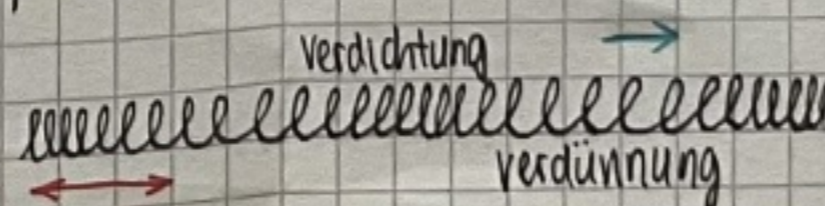 Verdichtung
Verdünnung